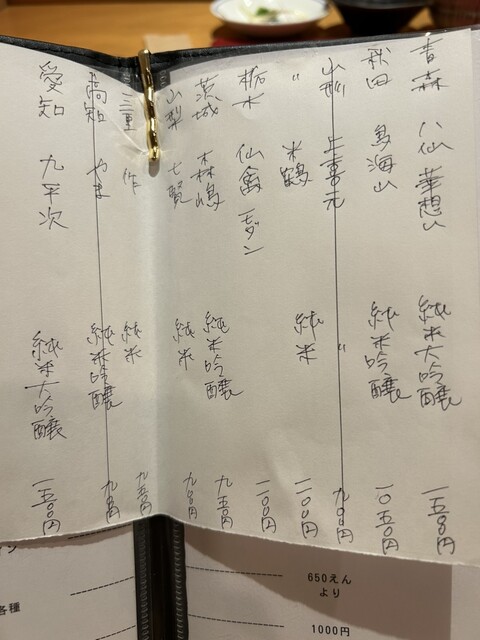 青森 八仙 華想い 純米大吟醸 一五〇〇円
秋田 鳥海山 純米吟醸 一〇五〇円
山形 上喜元 〃 九〇〇円
〃 米鶴 純米 一〇〇〇円
栃木 仙禽 モダン 一一〇〇円
茨城 森嶋 純米吟醸 九五〇円
山梨 七賢 純米 九〇〇円
三重 作 純米 九五〇円
高知 純米吟醸 九〇〇円
愛知 九平次 純米大吟醸 一五〇〇円
ン
650えん
より
各種
1000円